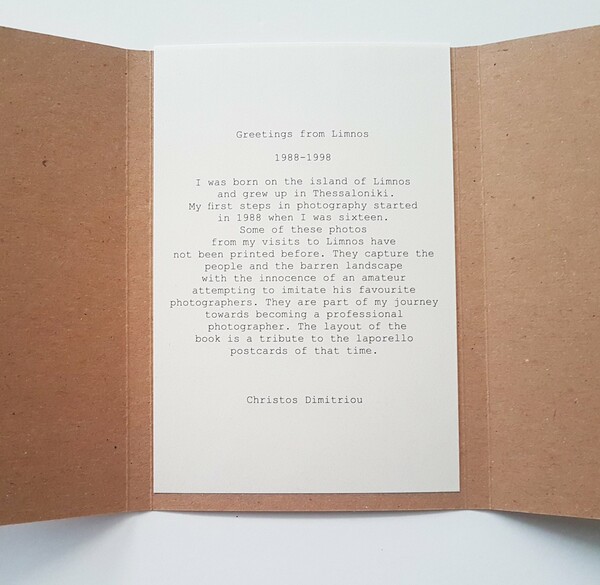 Greetings from Limnos
1988-1998
I was born on the island of Limnos
and grew up in Thessaloniki.
My first steps in photography started
in 1988 when I was sixteen.
Some of these photos
from my visits to Limnos have
not been printed before. They capture the
people and the barren landscape
with the innocence of an amateur
attempting to imitate his favourite
photographers. They are part of my journey
towards becoming a professional
photographer. The layout of the
book is a tribute to the laporello
postcards of that time.
Christos Dimitriou